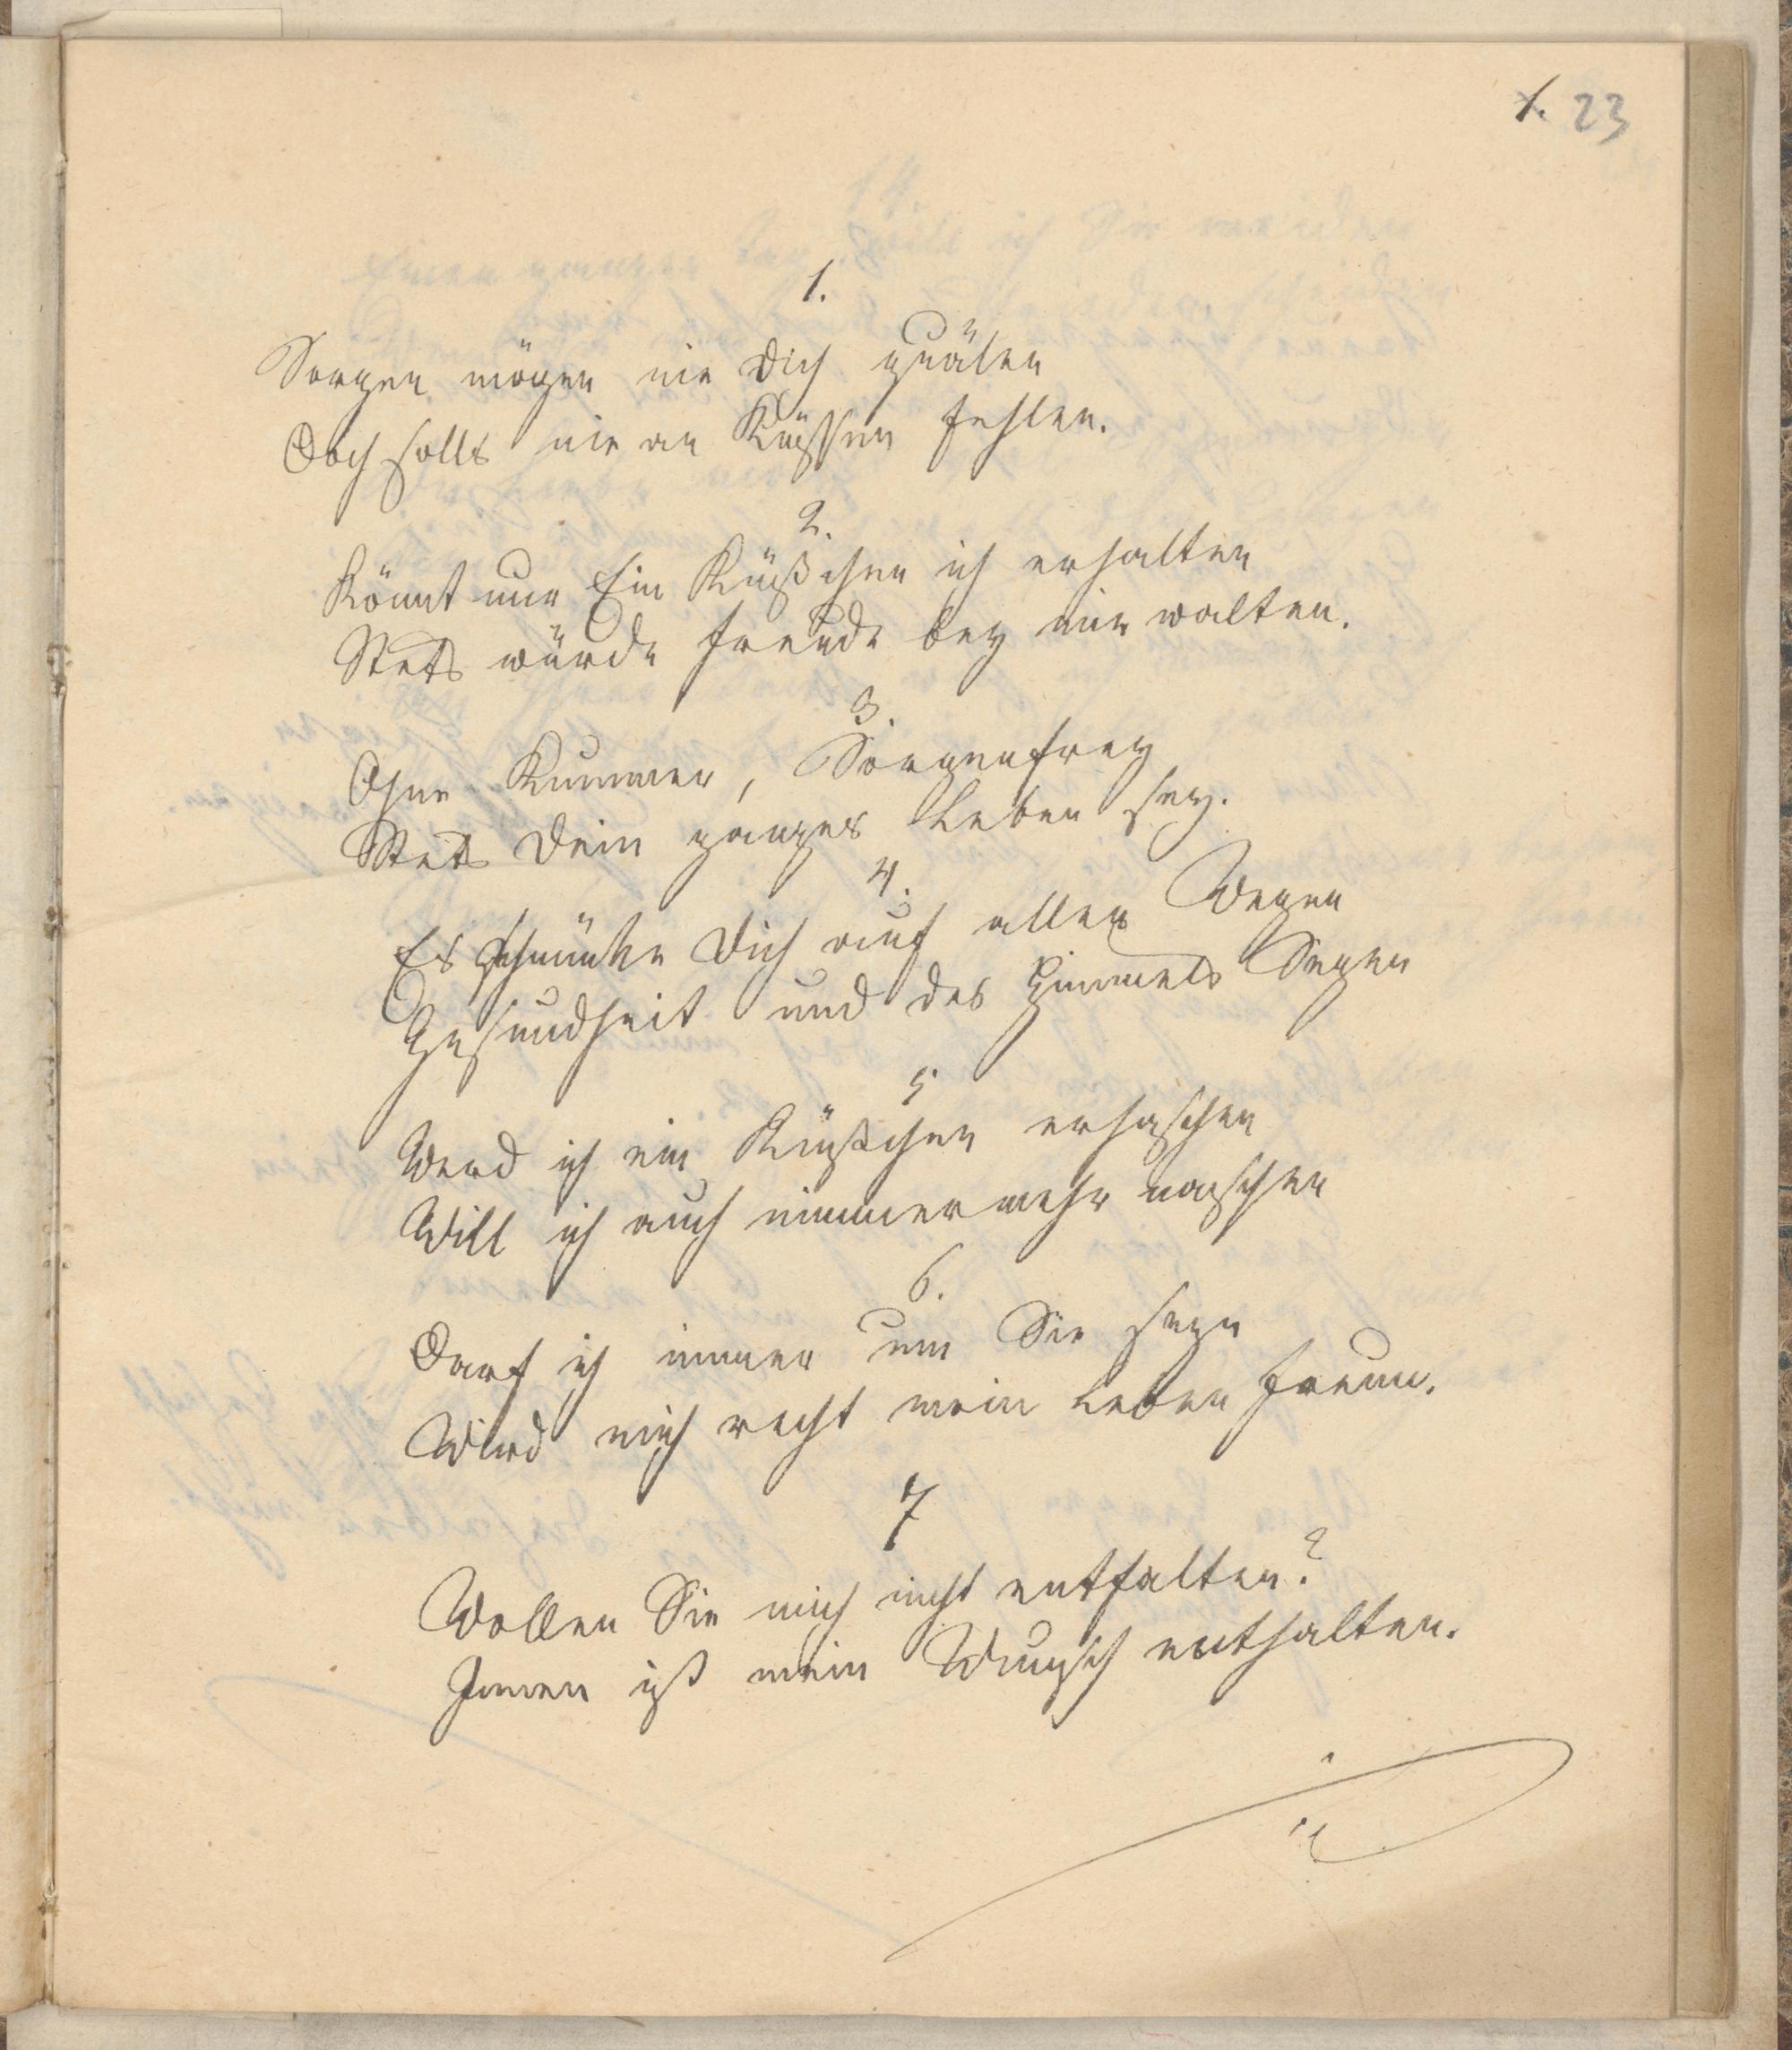 1. 23
1.
Sorgen mögen nie Dich quälen
Doch solls nie an Küssen fehlen.
2.
Könnt nur Ein Küßchen ich erhalten
Stets würde Freude bey mir walten.
3.
Ohne Kummer, Sorgenfrey
Stets Dein ganzes Leben sey.
4.
Es schmücke Dich auf allen Wegen
Gesundheit und des Himmels Segen
5
Werd ich ein Küßchen erhaschen
Will ich auch nimmermehr naschen
6.
Darf ich immer um Sie seyn
Wird mich recht mein Leben freun.
7
Wollen Sie mich nicht entfalten?
Innen ist mein Wunsch enthalten.